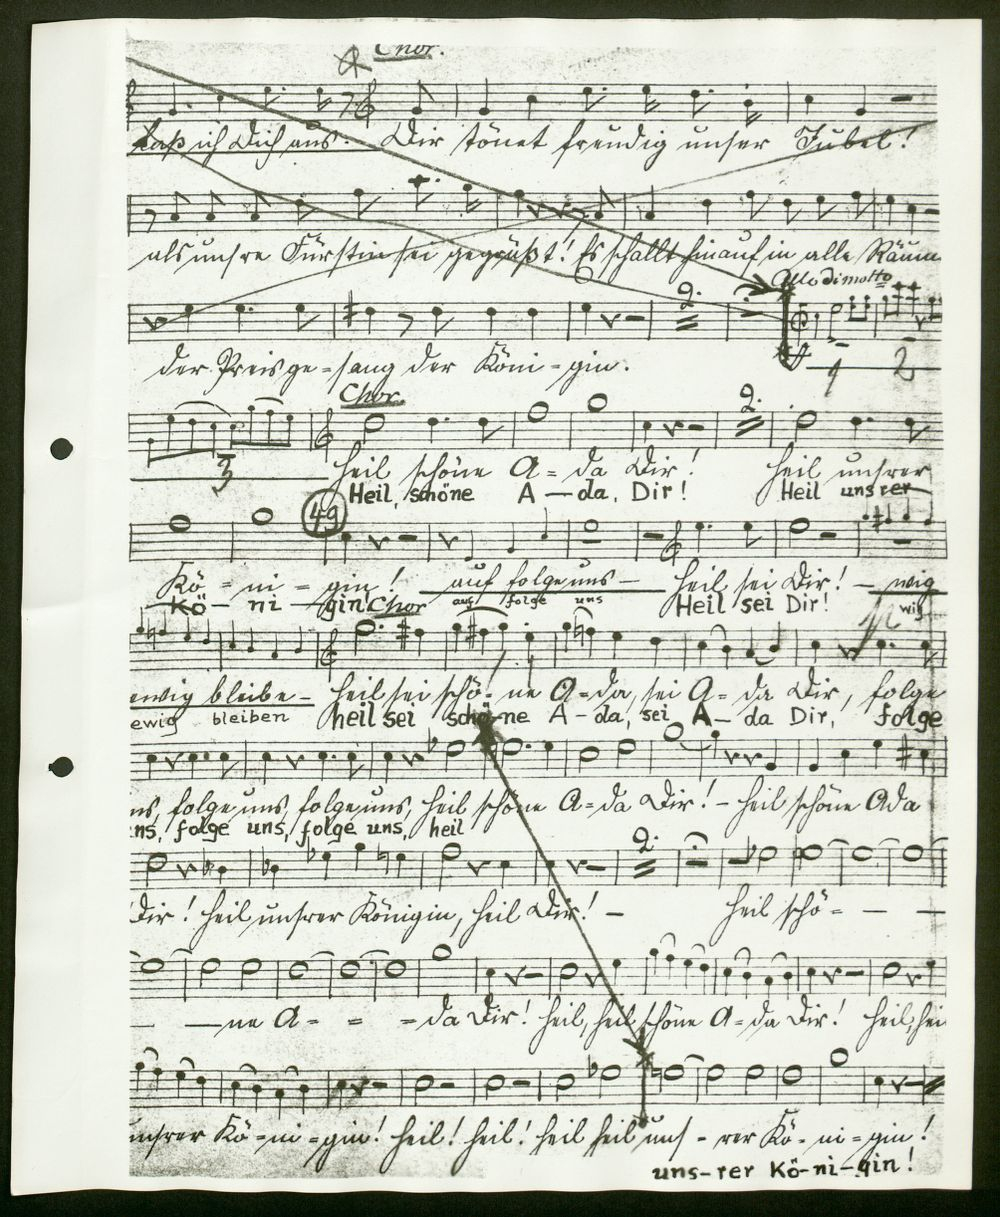 Chor.
laß ich Dich aus. Dir tönet freudig unser Jubel!
als unsre Fürstin sei gegrüßt! Es schallt hinauf in alle Räum
All° di molto
2.
der Preisge-sang der Köni-gin.
1 2
Chor.
2.
3
Heil schöne A-da Dir! Heil unsrer
Heil, schöne A—da, Dir! Heil unsrer
49
Kö-ni-gin! auf folge uns — Heil sei Dir! — wig
Kö-ni-gin! Chor auf folge uns Heil sei Dir! wig
ewig bleibe — Heil sei schö-ne A-da, sei A-da Dir, folge
ewig bleiben heil sei schö-ne A-da, sei A-da Dir, folge
ns, folge uns, folge uns, heil schöne A-da Dir! — heil schöne Ada
ns, folge uns, folge uns, heil
2.
Dir! heil, unsrer Königin, heil Dir! — heil schö- — —
— —ne A- - -da Dir! heil, heil schöne A-da Dir! heil, hei
unsrer Kö-ni-gin! heil! heil! heil heil uns-rer Kö-ni-gin!
uns-rer Kö-ni-gin!